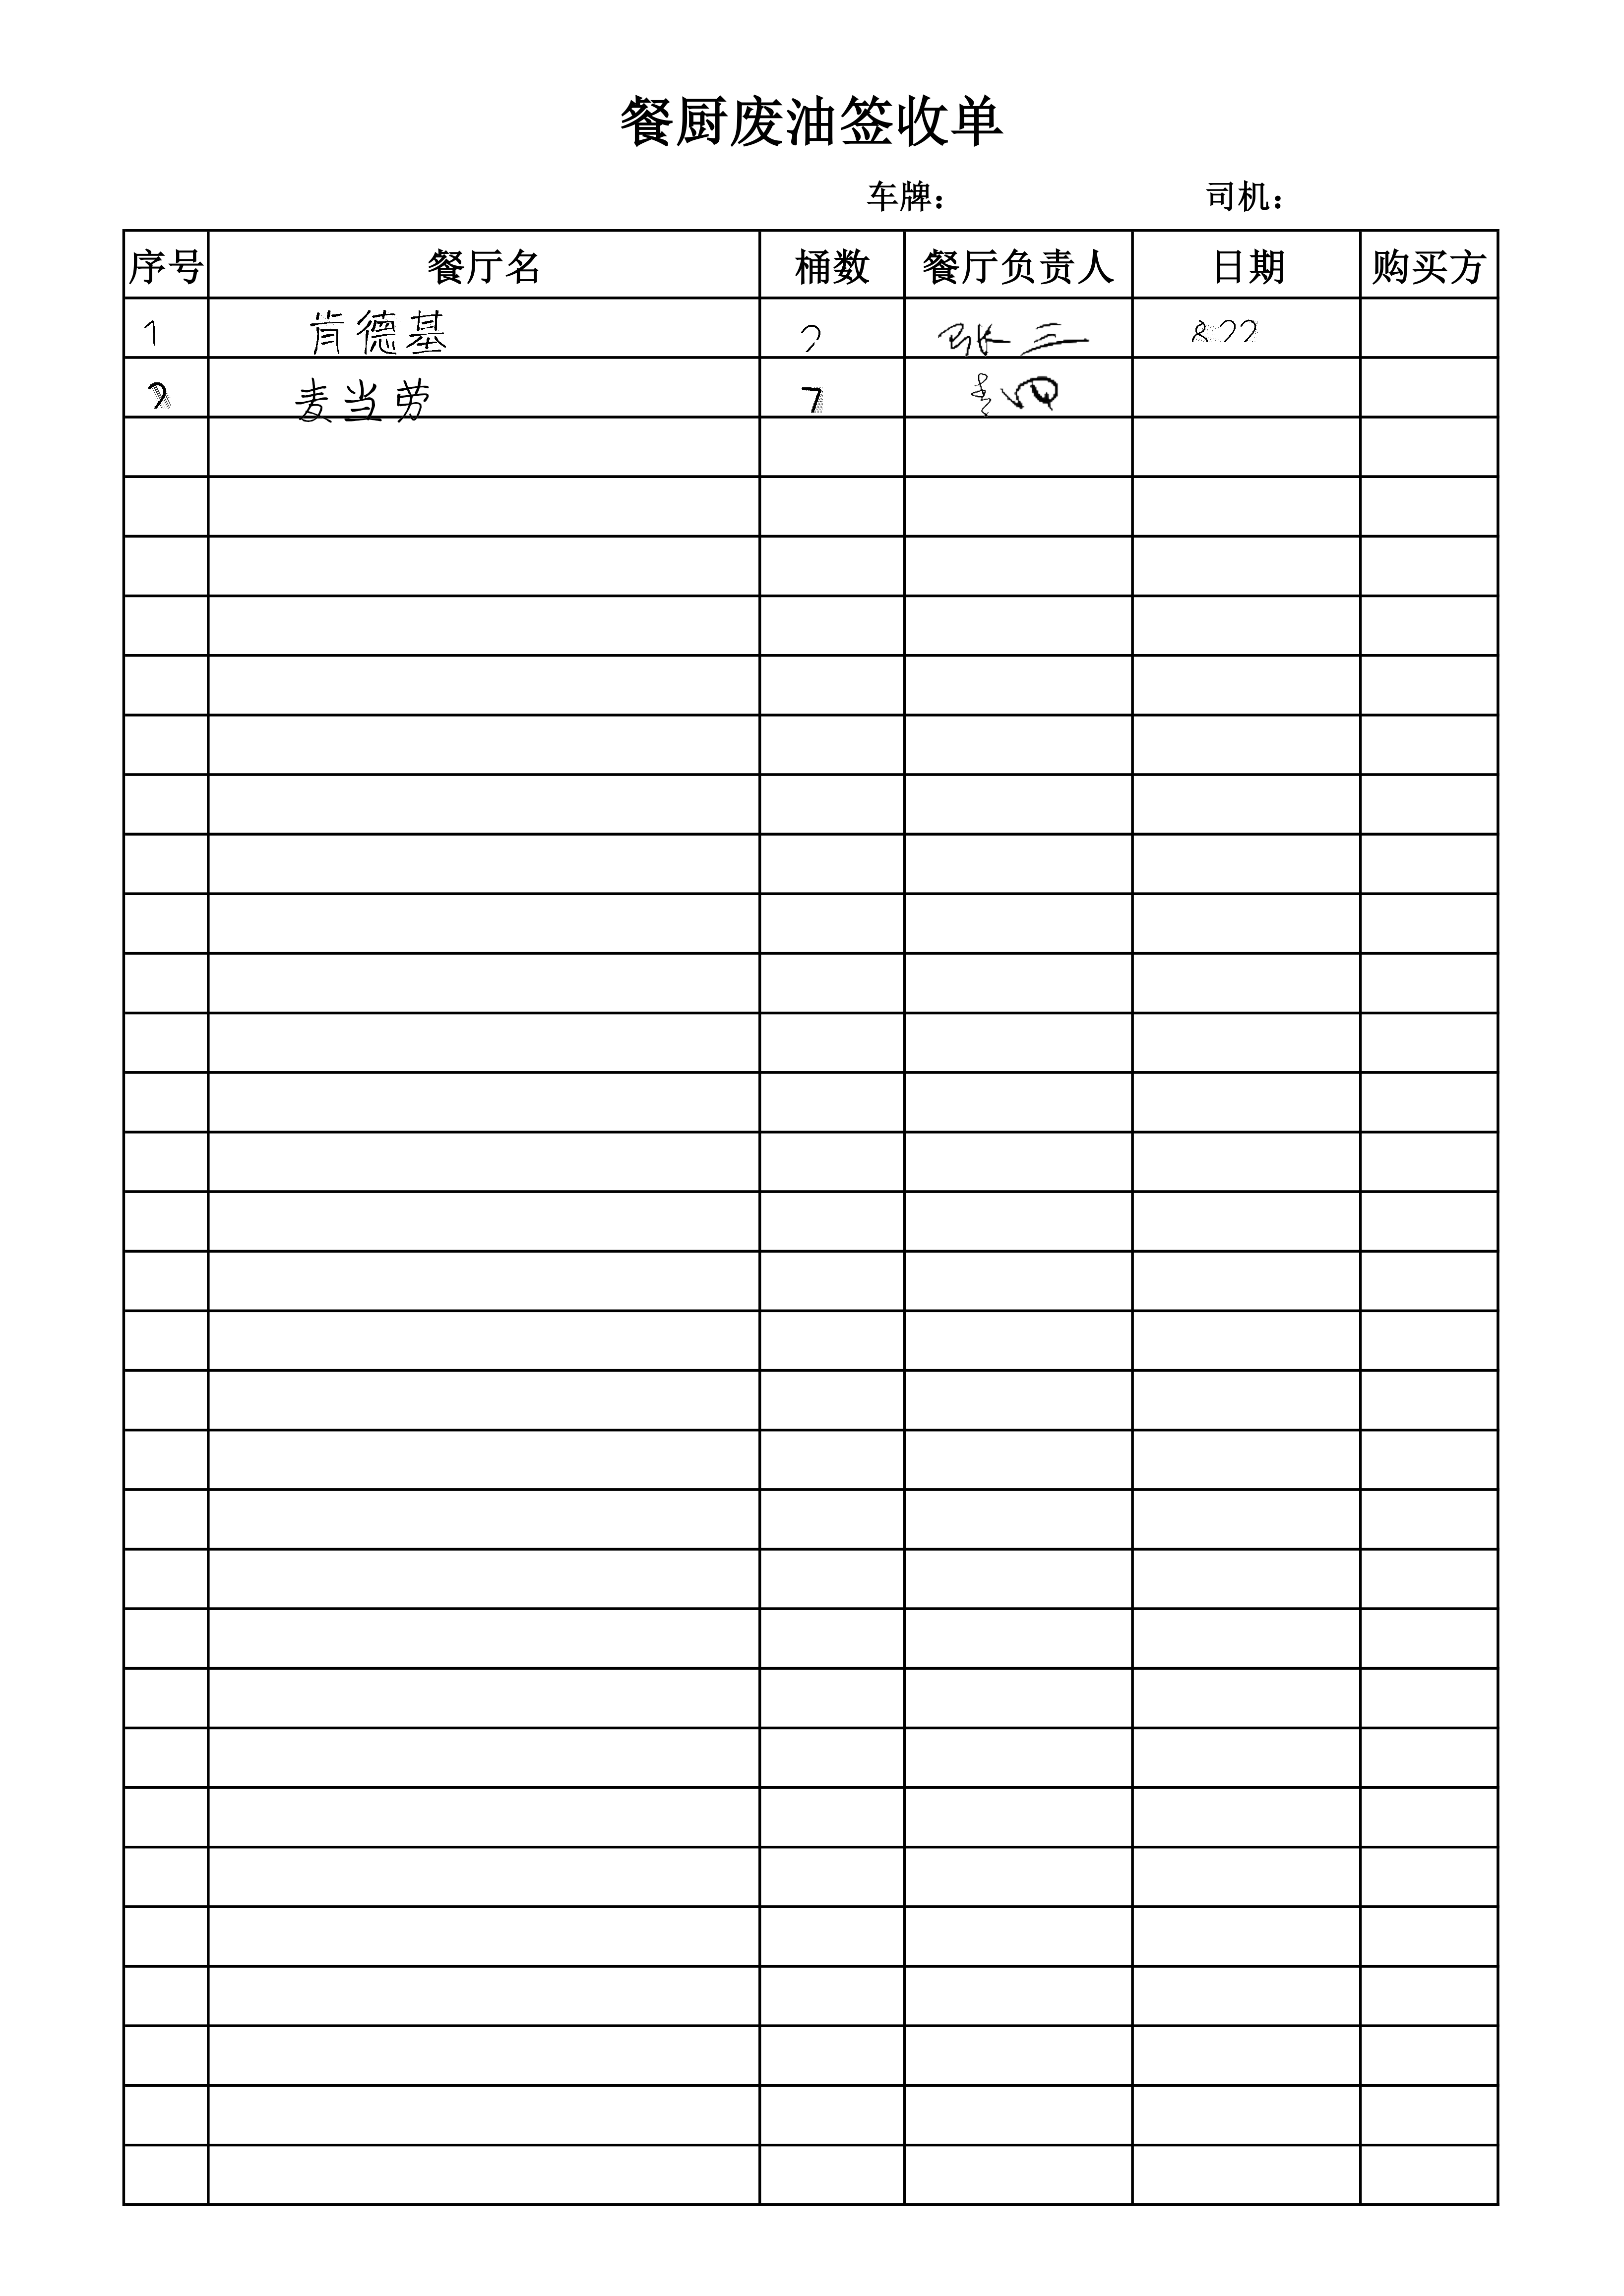 餐厨废油签收单
车牌： 司机：
序号 餐厅名 桶数 餐厅负责人 日期 购买方
1 肯德基 2 张三 8.22
2 麦当劳 7